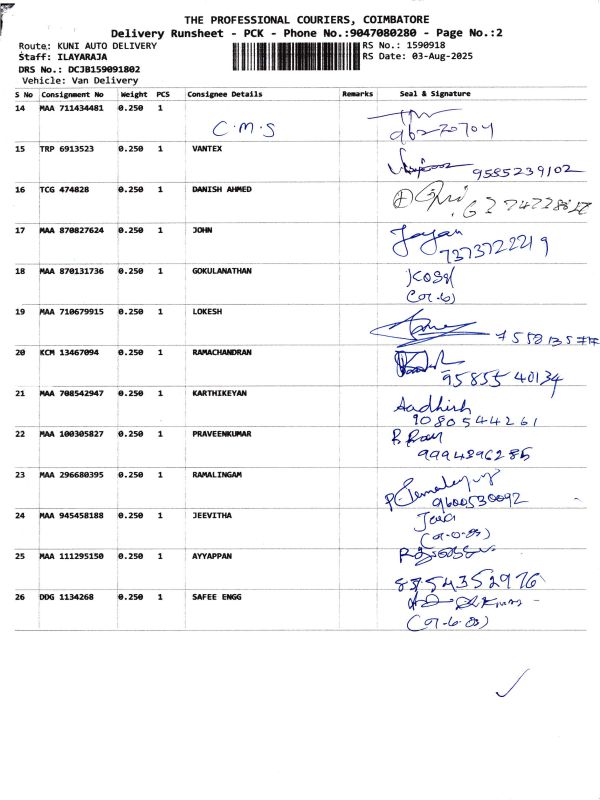 THE PROFESSIONAL COURIERS, COIMBATORE
Delivery Runsheet - PCK - Phone No.:9047080280 - Page No.:2
Route: KUNI AUTO DELIVERY RS No.: 1590918
Staff: ILAYARAJA RS Date: 03-Aug-2025
DRS No.: DCJB159091802
Vehicle: Van Delivery
S No Consignment No Weight PCS Consignee Details Remarks Seal & Signature
14 MAA 711434481 0.250 1
C.M.S
15 TRP 6913523 0.250 1 VANTEX
9585239102
16 TCG 474828 0.250 1 DANISH AHMED
17 MAA 870827624 0.250 1 JOHN
Jayan
7373722219
18 MAA 870131736 0.250 1 GOKULANATHAN
19 MAA 710679915 0.250 1 LOKESH
20 KCM 13467094 0.250 1 RAMACHANDRAN
95855 40134
21 MAA 708542947 0.250 1 KARTHIKEYAN
Aadhish
9080544261
22 MAA 100305827 0.250 1 PRAVEENKUMAR
9994896285
23 MAA 296680395 0.250 1 RAMALINGAM
9600530092
24 MAA 945458188 0.250 1 JEEVITHA
25 MAA 111295150 0.250 1 AYYAPPAN
8754352976
26 DDG 1134268 0.250 1 SAFEE ENGG